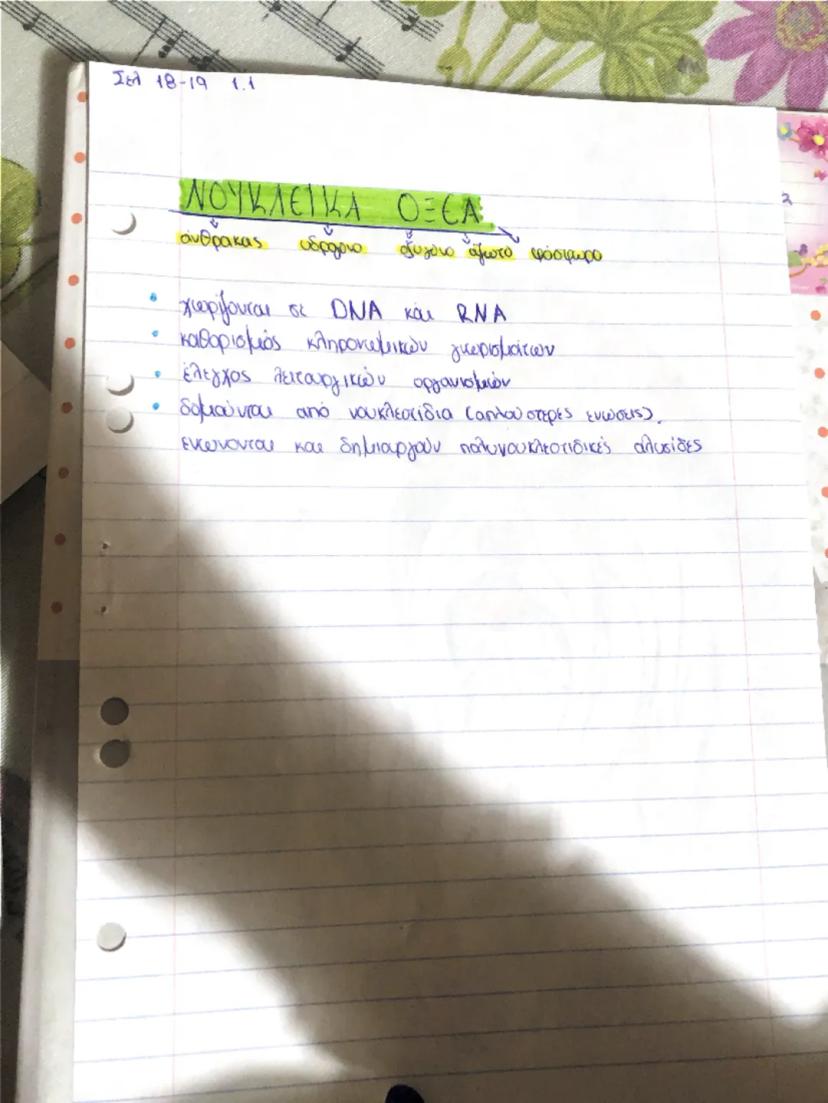 Σελ 18-19 1.1
ΝΟΥΚΛΕΙΚΑ ΟΞΕΑ
άνθρακας υδρογόνο οξυγόνο άζωτο φώσφορο
χωρίζονται σε DNA και RNA
καθορισμός κληρονομικών γνωρισμάτων
έλεγχος λειτουργικών οργανισμών
δομούνται από νουκλεοτίδια (απλούστερες ενώσεις).
ενώνονται και δημιουργούν πολυνουκλεοτιδικές αλυσίδες
2